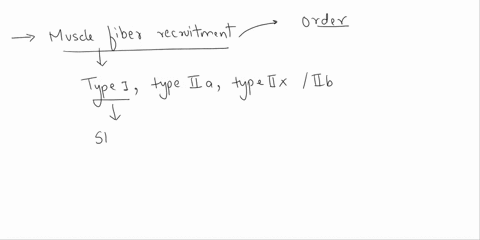 → Muscle fiber recruitment → Order
Type I, type IIa, type IIx / IIb
Sl